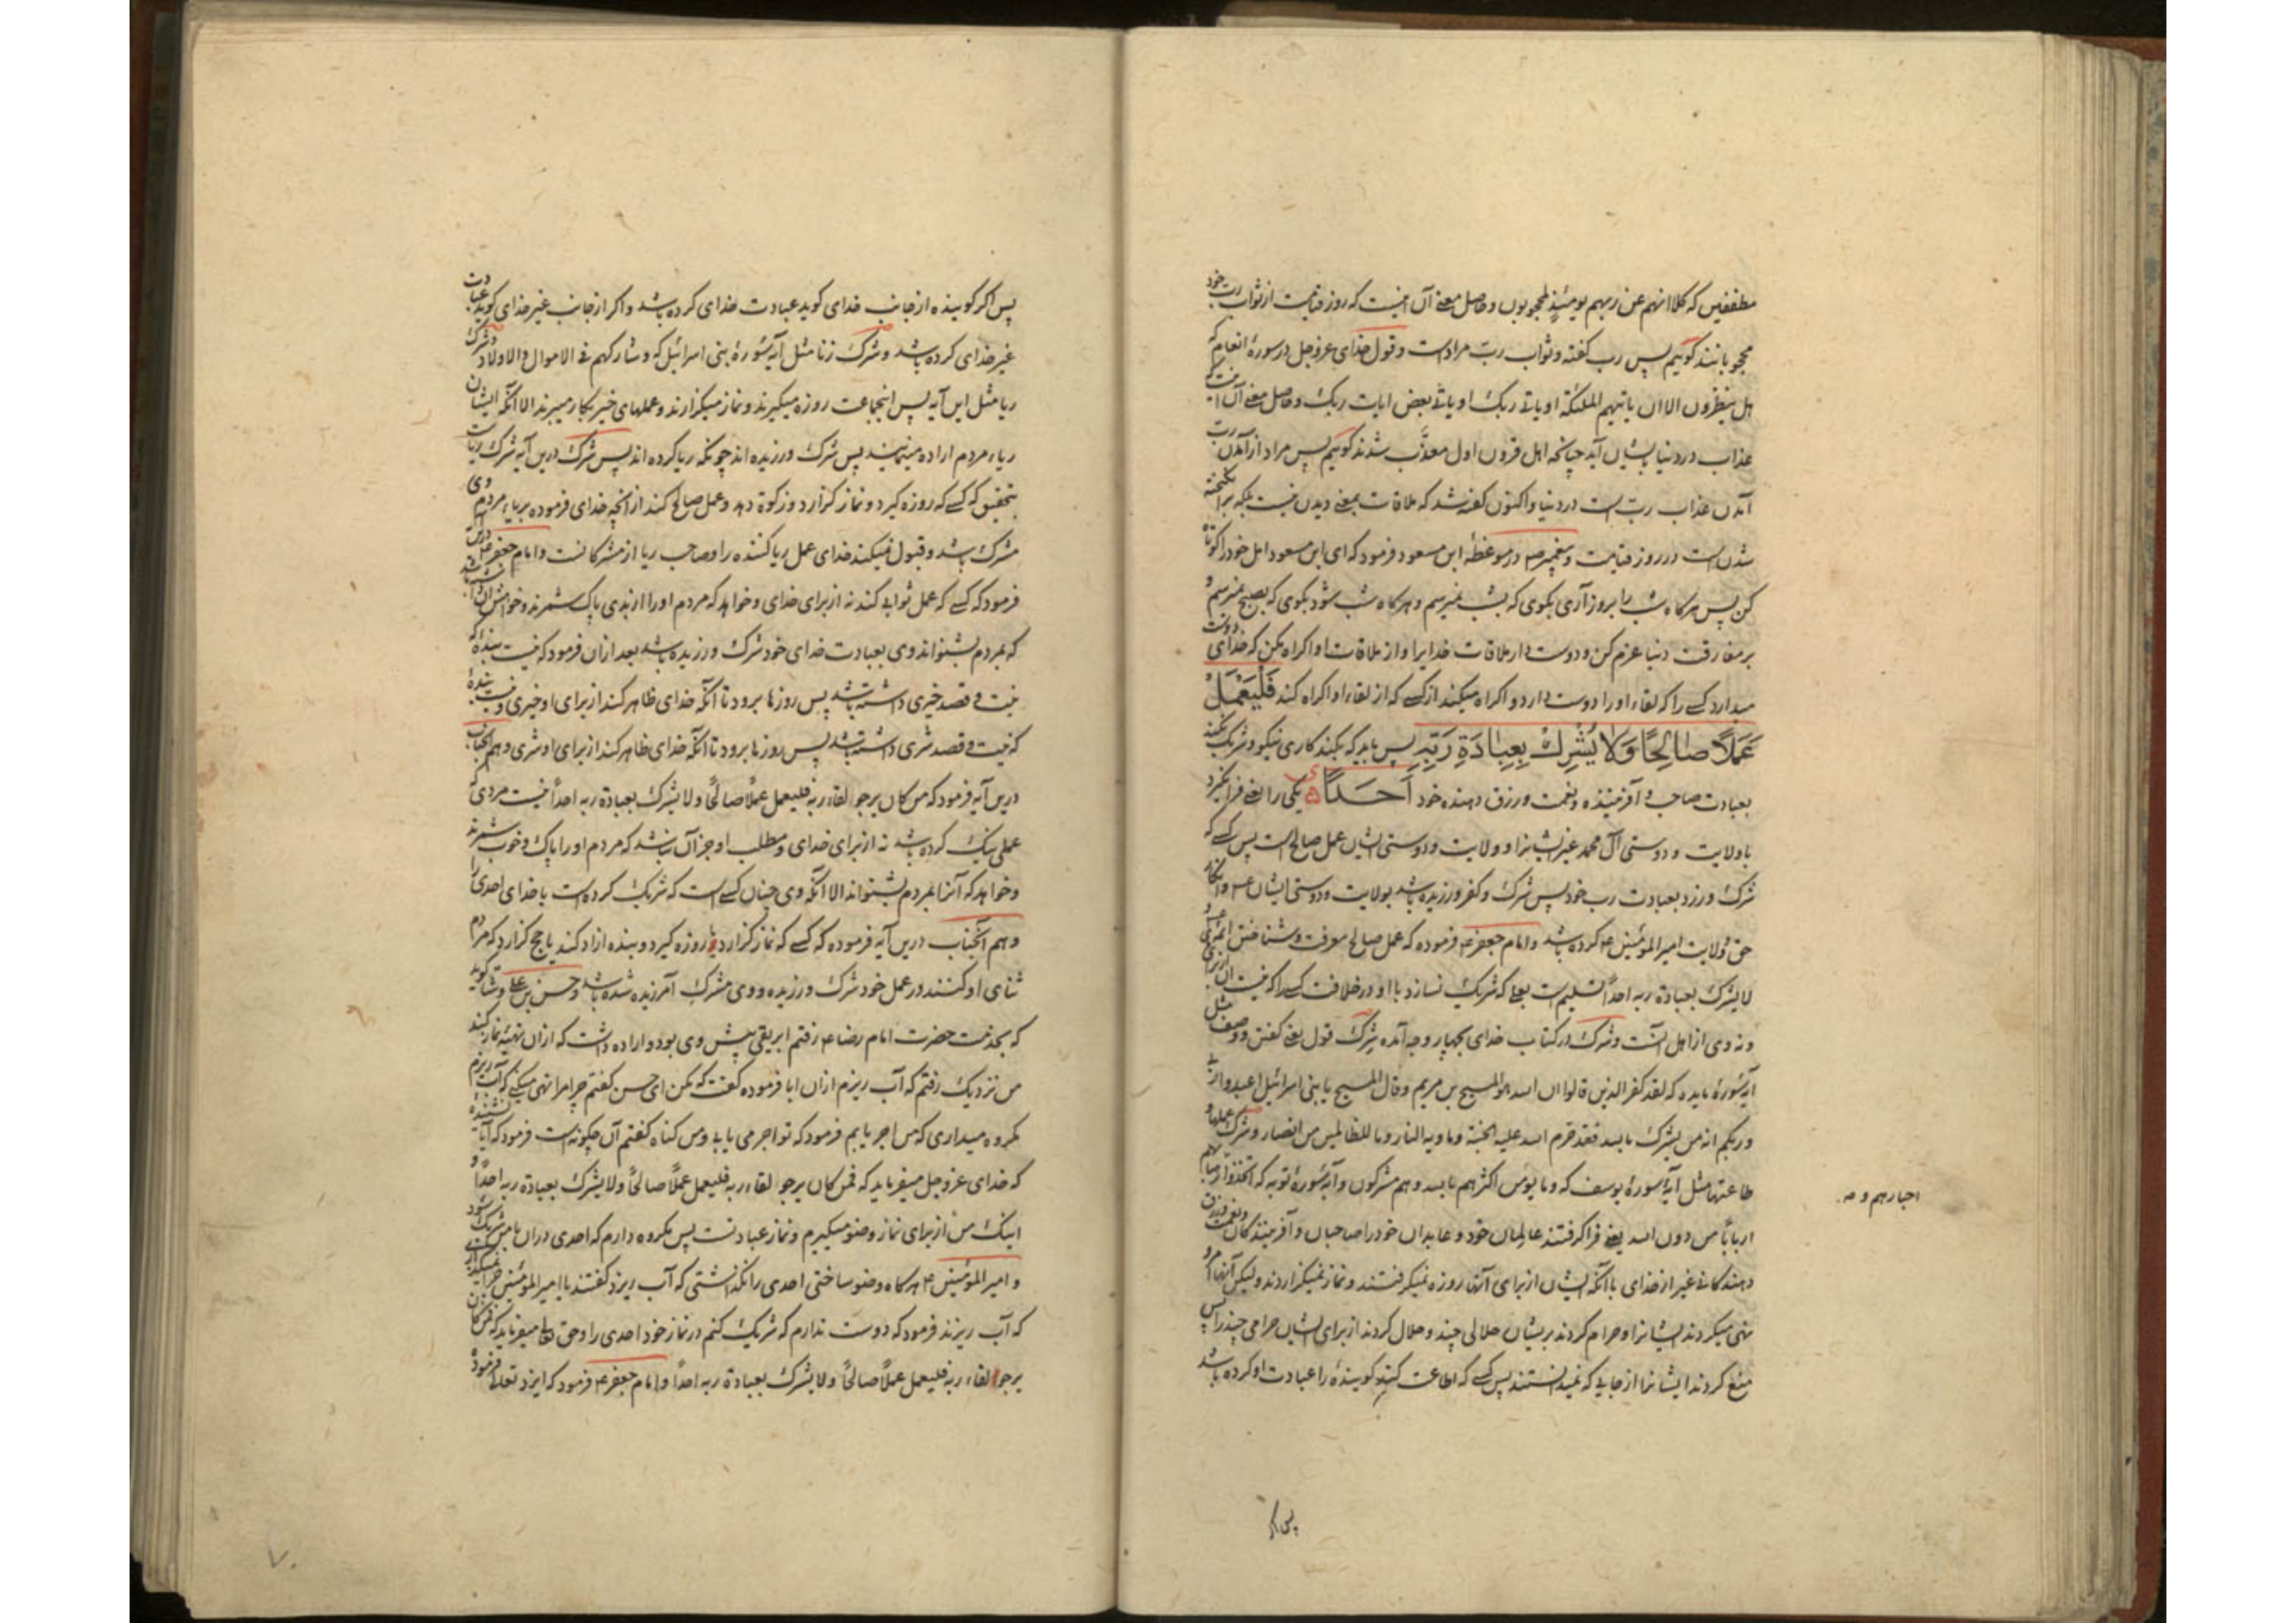 مطففین که کلا انهم عن ربهم یومئذ لمحجوبون و حاصل معنی آن اینست که روز قیامت از ثواب رب خود
محجوبانند گوییم پس رب گفته و ثواب رب مراد است و قول خدای عزوجل در سورهٔ انعام که
هل ینظرون الا ان یاتیهم الملئکة او یاتی ربک او یاتی بعض ایات ربک و حاصل معنی آن اینست که
عذاب در دنیا بایشان آید چنانچه اهل قرون اول معذّب شدند گوییم پس مراد از آمدن رب
آمدن عذاب رب است در دنیا و اکنون گفته شد که ملاقات بمعنی دیدن نیست بلکه برانگیخته
شدن است در روز قیامت و پیغمبر ص در موعظهٔ ابن مسعود فرمود که ای ابن مسعود امل خود را کوتاه
کن پس هر کاه شب را بروز آری بگوی که بشب نمیرسم و هر کاه شب شود بگوی که بصبح نمیرسم و
بر مفارقت دنیا عزم کن و دوست دار ملاقات خدایرا و از ملاقات او اکراه مکن که خدای دوست
میدارد کسے را که لقاء او را دوست دارد و اکراه میکند از کسے که از لقاء او اکراه کند فَلْیَعْمَلْ
عَمَلًا صَالِحًا وَلَا یُشْرِكْ بِعِبَادَةِ رَبِّهِ پس باید که بکند کاری نیکو و شریک نکند
بعبادت صاحب و آفریننده و نعمت و رزق دهنده خود اَحَدًا یکی را یعنی فرا نگیرد
با ولایت و دوستی آل محمد غیر ایشانرا و ولایت و دوستی ایشان عمل صالح است پس کسے که
شرک ورزد بعبادت رب خود پس شرک و کفر ورزیده باشد بولایت و دوستی ایشان ع و انکار
حق ولایت امیر المؤمنین ع کرده باشد و امام جعفر ع فرموده که عمل صالح معرفت و شناختن ائمه است و
لا یشرک بعبادة ربه احداً تسلیم است بعلی که شریک نسازد با او در خلافت کسے را که نیست آن از برای وی
و نه وی از اهل آنست و شرک در کتاب خدای بچهار وجه آمده شرک قول یعنی گفتن و وصف مثل
آیهٔ سورهٔ مایده که لقد کفر الذین قالوا ان الله هو المسیح بن مریم و قال المسیح یا بنی اسرائیل اعبدوا ربی
و ربکم انه من یشرک بالله فقد حرم الله علیه الجنة و ماویه النار و ما للظالمین من انصار و شرک عملها و
طاعتها مثل آیهٔ سورهٔ یوسف که و ما یؤمن اکثرهم بالله و هم مشرکون و آیهٔ سورهٔ توبه که اتخذوا رهبانهم
احبارهم و صه
ارباباً من دون الله یعنی فرا گرفتند عالمان خود و عابدان خود را صاحبان و آفرینندگان و نعمت و رزق
دهندگانی غیر از خدای با آنکه ایشان از برای آنها روزه نمیگرفتند و نماز نمیگزاردند ولیکن آنها امر و
نهی میکردند ایشانرا و حرام کردند بریشان حلالی چند و حلال کردند از برای ایشان حرامی چند را پس
منع کردند ایشانرا از جایی که نمیدانستند پس کسے که اطاعت کند گویندهٔ را عبادت او کرده باشد
پس اکر
پس اکر گوینده از جانب خدای گوید عبادت خدای کرده باشد و اکر از جانب غیر خدای گوید عبادت
غیر خدای کرده باشد و شرک زنا مثل آیهٔ سورهٔ بنی اسرائیل که و شارکهم فی الاموال والاولاد و شرک
ریا مثل این آیه پس اینجماعت روزه میگیرند و نماز میگزارند و عملهای خیر بکار میبرند الا آنکه ایشان
ریاء مردم اراده مینمایند پس شرک ورزیده اند چونکه ریا کرده اند پس شرک درین آیه شرک ریاست
بتحقیق که کسے که روزه گیرد و نماز گزارد و زکوة دهد و عمل صالح کند از آنچه خدای فرموده بریاء مردم وی
مشرک باشد و قبول نمیکند خدای عمل ریا کننده را و صاحب ریا از مشرکانست و امام جعفر ع درین آیه
فرمود که کسے که عمل ثوابی کند نه از برای خدای و خواهد که مردم او را از بدی پاک شمرند و خواهش آن داشته باشد
که بمردم بشنواند وی بعبادت خدای خود شرک ورزیده باشد بعد از ان فرمود که نیست بندهٔ که
نیت و قصد خیری داشته باشد پس روزها برود تا آنکه خدای ظاهر کند از برای او خیری و نیست بندهٔ
که نیت و قصد شری داشته باشد پس روزها برود تا آنکه خدای ظاهر کند از برای او شری و هم آنجناب
درین آیه فرمود که من کان یرجو لقاء ربه فلیعمل عملًا صالحًا ولا یشرک بعبادة ربه احداً نیست مردی که
عملی نیک کرده باشد نه از برای خدای و مطلب او جز آن نباشد که مردم او را پاک و خوب شمرند
و خواهد که آنرا بمردم بشنواند الا آنکه وی چنان کسے است که شریک کرده است با خدای احدی را
و هم آنجناب درین آیه فرموده که کسے که نماز گزارد یا روزه گیرد و بنده ازاد کند یا حج گزارد که مردم
ثنای او کنند در عمل خود شرک ورزیده و وی مشرک آمرزیده شده باشد و حسن بن علی وشا گوید
که بخدمت حضرت امام رضا ع رفتم ابریقی پیش وی بود و اراده داشت که ازان تهیهٔ نماز کند
من نزدیک رفتم که آب ریزم ازان ابا فرموده گفت که مکن ای حسن گفتم چرا مرا نهی میکنی که آب ریزم
مکروه میداری که من اجر یابم فرمود که تو اجر می یابی و من کناه گفتم آن چگونه است فرمود که آیا نشنیدهٔ
که خدای عزوجل میفرماید که فمن کان یرجو لقاء ربه فلیعمل عملًا صالحًا ولا یشرک بعبادة ربه احداً و
اینک من از برای نماز وضو میگیرم و نماز عبادتست پس مکروه دارم که احدی دران با من شریک شود
و امیر المؤمنین ع هر کاه وضو ساختی احدی را نگذاشتی که آب ریزد گفتند یا امیر المؤمنین چرا نمیگذاری
که آب ریزند فرمود که دوست ندارم که شریک کنم در نماز خود احدی را و حق تعالی میفرماید که فمن کان
یرجو لقاء ربه فلیعمل عملًا صالحًا ولا یشرک بعبادة ربه احداً و امام جعفر ع فرمود که ایزد تعالی فرمود
۷۰